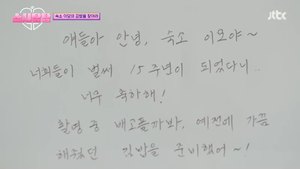 숙소 이모의 김밥을 찾아라
jtbc
얘들아 안녕, 숙소 이모야~
너희들이 벌써 15주년이 되었다니..
너무 축하해!
촬영 중 배고플까봐, 예전에 가끔
해줬던 김밥을 준비했어~!